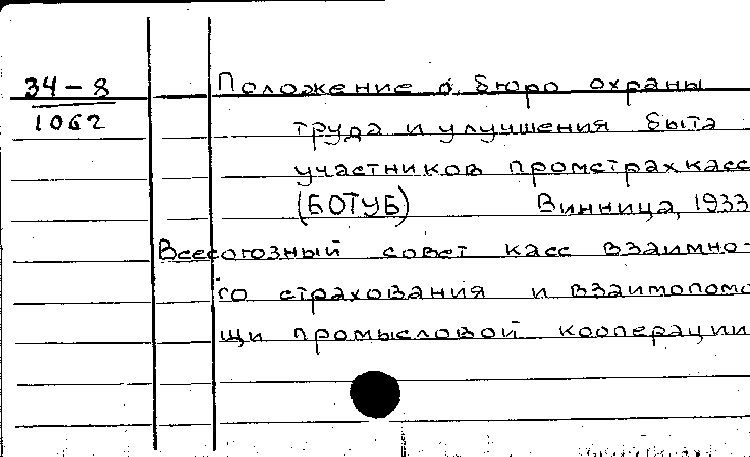 34-8
1062
Положение о бюро охраны
труда и улучшения быта
участников промстрахкасс
(БОТУБ) Винница, 1933
Всесоюзный совет касс взаимно-
го страхования и взаимопомо
щи промысловой кооперации